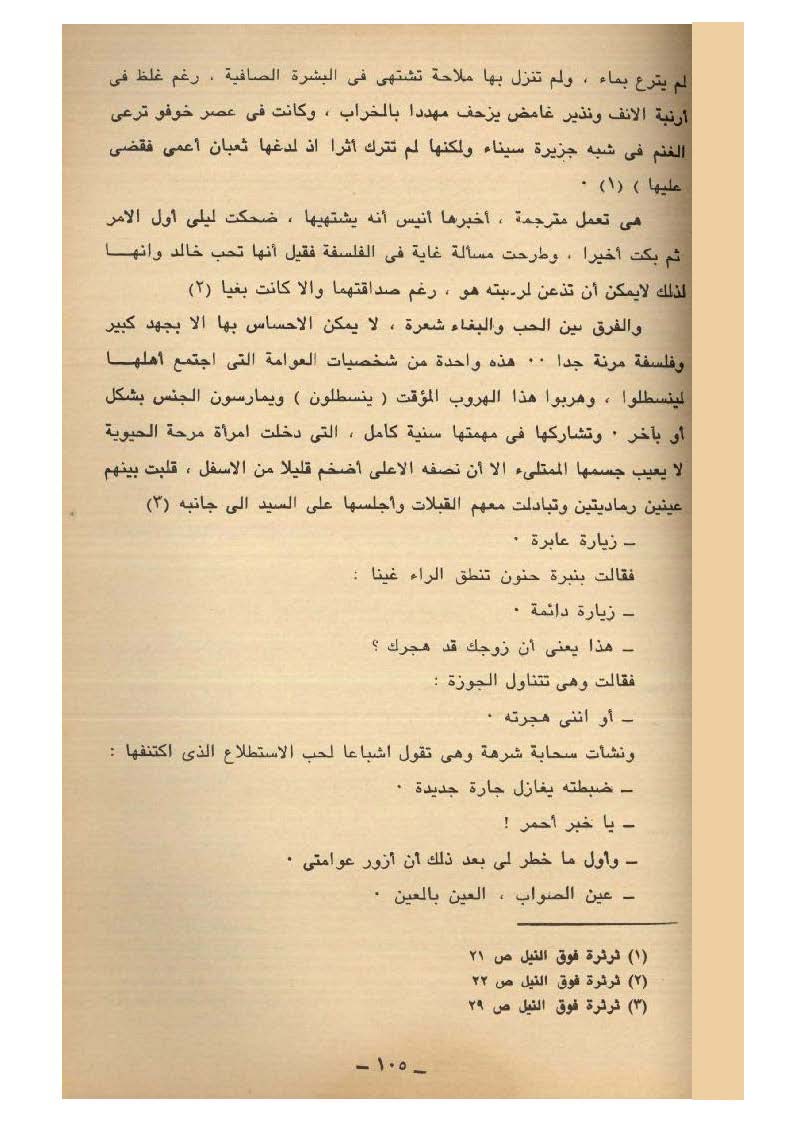 لم يترع بماء ، ولم تنزل بها ملاحة تشتهى فى البشرة الصافية ، رغم غلظ فى
أرنبة الانف ونذير غامض يزحف مهددا بالخراب ، وكانت فى عصر خوفو ترعى
الغنم فى شبه جزيرة سيناء ولكنها لم تترك أثرا اذ لدغها ثعبان أعمى فقضى
عليها ) (١) ٠
هى تعمل مترجمة ، أخبرها أنيس أنه يشتهيها ، ضحكت ليلى أول الامر
ثم بكت أخيرا ، وطرحت مسألة غاية فى الفلسفة فقيل أنها تحب خالد وانهـــا
لذلك لايمكن أن تذعن لرغبته هو ، رغم صداقتهما والا كانت بغيا (٢)
والفرق بين الحب والبغاء شعرة ، لا يمكن الاحساس بها الا بجهد كبير
وفلسفة مرنة جدا ٠٠ هذه واحدة من شخصيات العوامة التى اجتمع أهلهـــا
لينسطلوا ، وهربوا هذا الهروب المؤقت ( ينسطلون ) ويمارسون الجنس بشكل
أو بآخر ٠ وتشاركها فى مهمتها سنية كامل ، التى دخلت امرأة مرحة الحيوية
لا يعيب جسمها الممتلىء الا أن نصفه الاعلى أضخم قليلا من الاسفل ، قلبت بينهم
عينين رماديتين وتبادلت معهم القبلات وأجلسها على السيد الى جانبه (٣)
ــ زيارة عابرة ٠
فقالت بنبرة حنون تنطق الراء غينا :
ــ زيارة دائمة ٠
ــ هذا يعنى أن زوجك قد هجرك ؟
فقالت وهى تتناول الجوزة :
ــ أو اننى هجرته ٠
ونشأت سحابة شرهة وهى تقول اشباعا لحب الاستطلاع الذى اكتنفها :
ــ ضبطته يغازل جارة جديدة ٠
ــ يا خبر أحمر !
ــ وأول ما خطر لى بعد ذلك أن أزور عوامتى ٠
ــ عين الصواب ، العين بالعين ٠
(١) ثرثرة فوق النيل ص ٢١
(٢) ثرثرة فوق النيل ص ٢٢
(٣) ثرثرة فوق النيل ص ٢٩
ــ ١٠٥ ــ